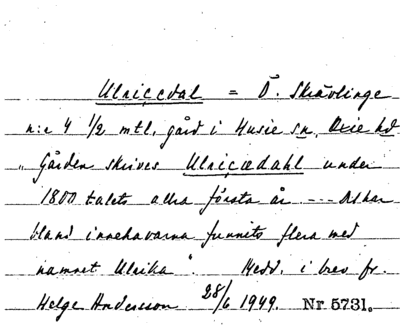 Ulriccdal = Ö. Skrävlinge
n:r 4 1/2 mtl, gård i Husie sn, Oxie hd
"Gården skrives Ulricædahl under
1800 talets allra första år --- Det har
bland innehavarna funnits flera med
namnet Ulrika". Medd. i brev fr.
Helge Andersson 28/6 1949. Nr 5731.